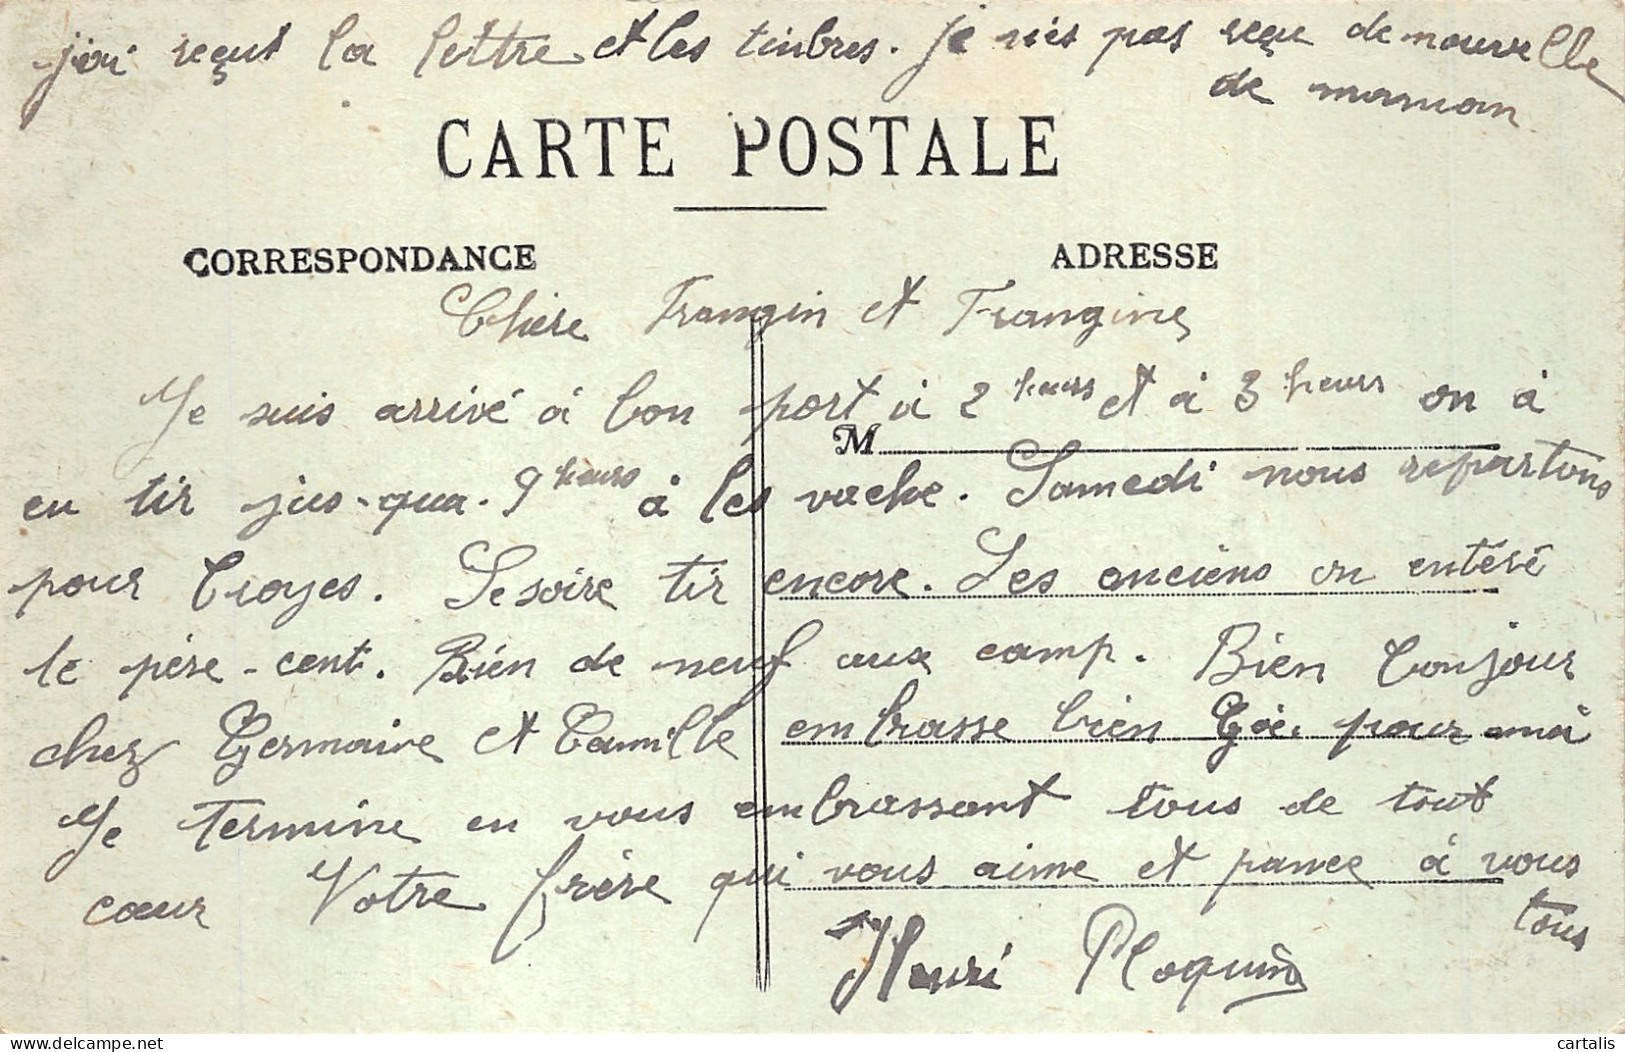 j'ai reçut la lettre et les timbres. je nés pas reçu de nouvelle
de maman
CARTE POSTALE
CORRESPONDANCE
ADRESSE
Chère Frangin et Frangine
Je suis arrivé à bon port à 2 heurs et à 3 heurs on à
M
eu tir jus-qua. 9 heurs à les vache. Samedi nous repartons
pour Troyes. Se soire tir encore. Les anciens on entéré
le père-cent. Rien de neuf aux camp. Bien bonjour
chez Germaine et Camille embrasse bien pour moi
Je termine en vous embrassant tous de tout
cœur Votre frère qui vous aime et pance à vous
tous
Henri Ploquin
cartalis
www.delcampe.net